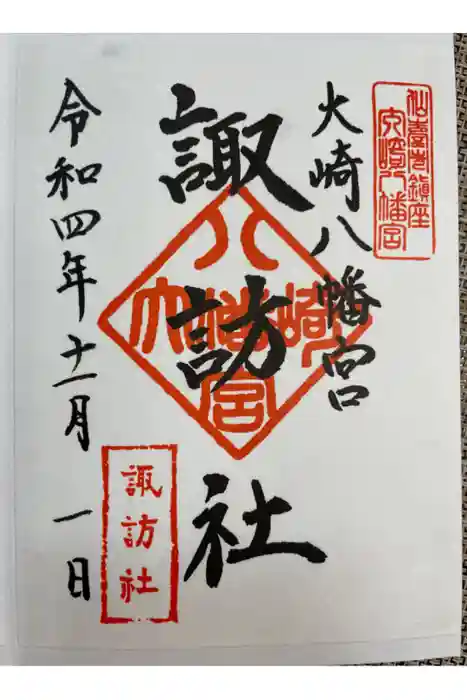 仙臺市鎮座
大崎八幡宮
大崎八幡宮
諏訪社
大崎八幡宮
諏訪社
令和四年十一月一日